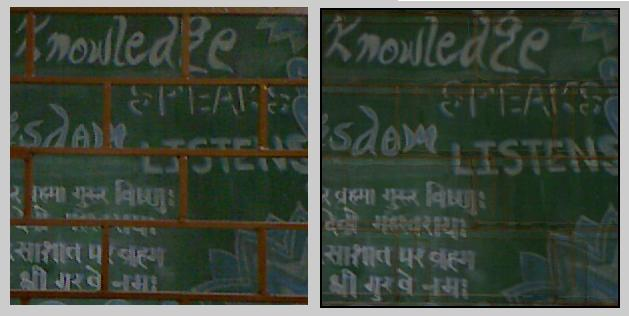 Knowledge
SPEAKS
isdom
LISTENS
र ब्रह्मा गुरुर विष्णुः
साक्षात पर ब्रह्म
श्री गुरवे नमः
Knowledge
SPEAKS
isdom
LISTENS
र ब्रह्मा गुरुर विष्णुः
देवो महेश्वरायः
साक्षात पर ब्रह्म
श्री गुरवे नमः